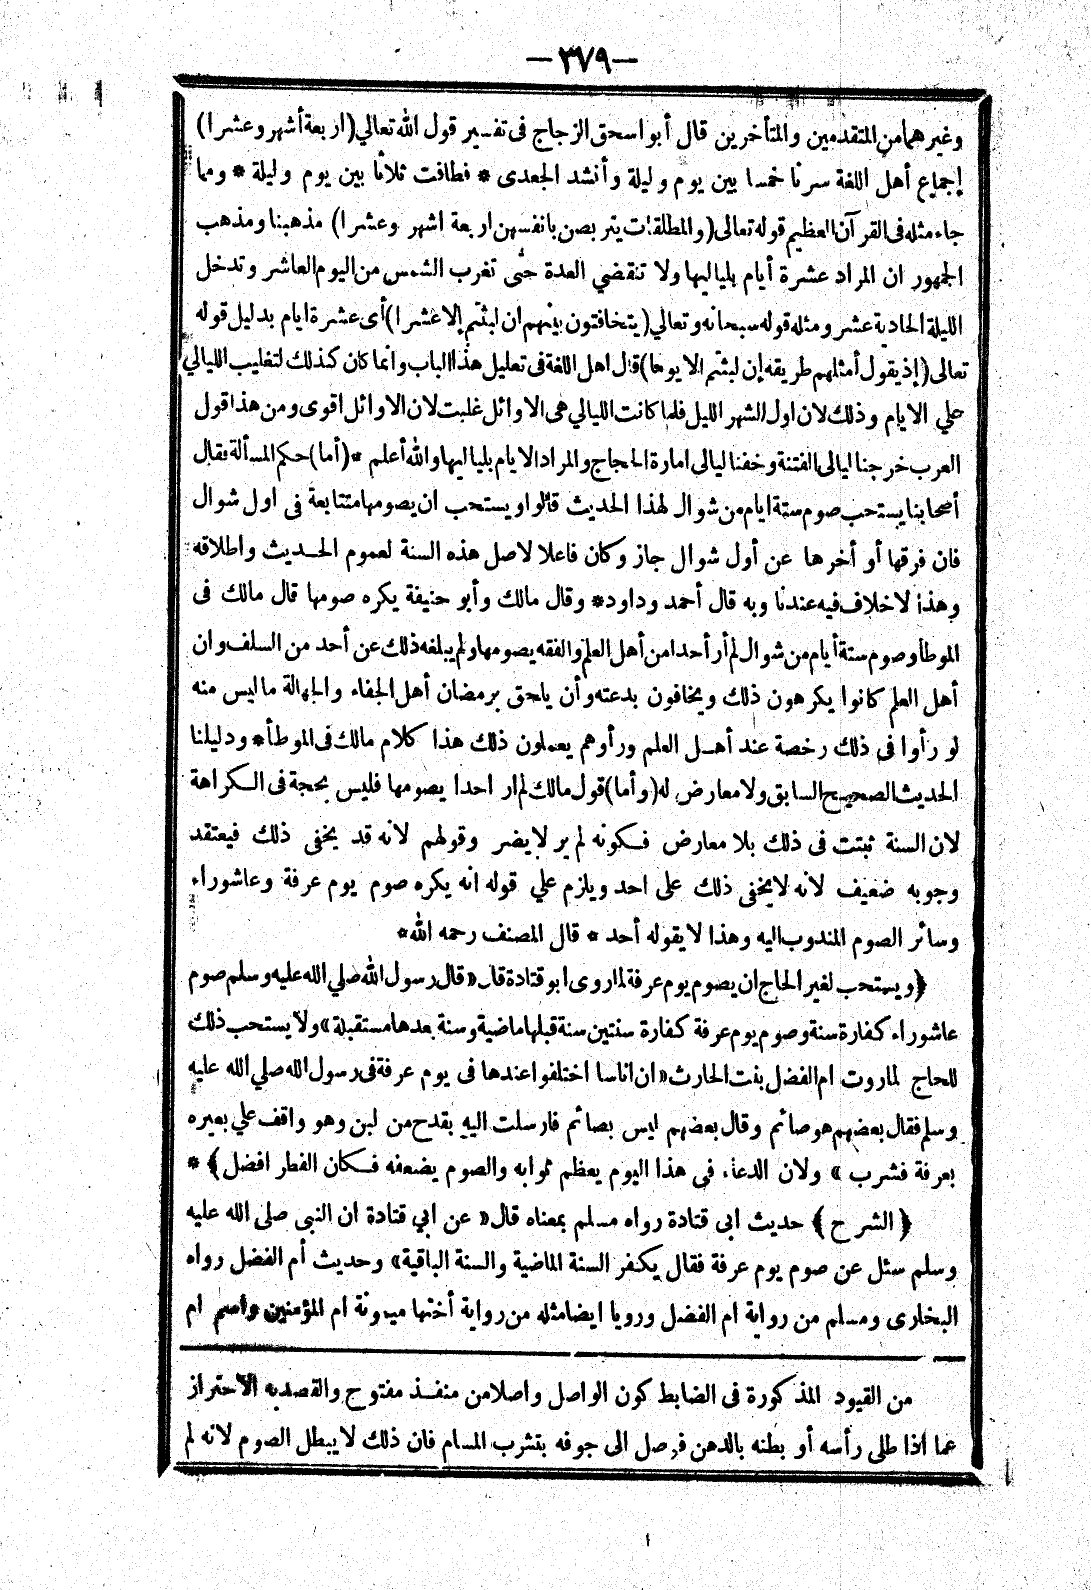 —٣٧٩—
وغيرهما من المتقدمين والمتأخرين قال أبو اسحق الزجاج فى تفسير قول الله تعالي (اربعة أشهر وعشرا)
إجماع أهل اللغة سرنا خمسا بين يوم وليلة وأنشد الجعدى * فطافت ثلاثا بين يوم وليلة * ومما
جاء مثله فى القرآن العظيم قوله تعالى (والمطلقات يتربصن بانفسهن اربعة اشهر وعشرا) مذهبنا ومذهب
الجمهور ان المراد عشرة أيام بلياليها ولا تنقضي العدة حتى تغرب الشمس من اليوم العاشر وتدخل
الليلة الحادية عشر ومثله قوله سبحانه وتعالي (يتخافتون بينهم ان لبثتم إلا عشرا) أى عشرة ايام بدليل قوله
تعالى (إذ يقول أمثلهم طريقه إن لبثتم الا يوما) قال اهل اللغة فى تعليل هذا الباب وانما كان كذلك لتغليب الليالي
علي الايام وذلك لان اول الشهر الليل فلما كانت الليالي هى الاوائل غلبت لان الاوائل اقوى ومن هذا قول
العرب خرجنا ليالى الفتنة وخفنا ليالى امارة الحجاج والمراد الايام بلياليها والله أعلم * (أما) حكم المسألة فقال
أصحابنا يستحب صوم ستة ايام من شوال لهذا الحديث قالوا ويستحب ان يصومها متتابعة فى اول شوال
فان فرقها أو أخرها عن أول شوال جاز وكان فاعلا لاصل هذه السنة لعموم الحديث واطلاقه
وهذا لاخلاف فيه عندنا وبه قال أحمد وداود* وقال مالك وأبو حنيفة يكره صومها قال مالك فى
الموطأ وصوم ستة أيام من شوال لم أر أحدا من أهل العلم والفقه يصومها ولم يبلغه ذلك عن أحد من السلف وان
أهل العلم كانوا يكرهون ذلك ويخافون بدعته وأن يلحق برمضان أهل الجفاء والجهالة ماليس منه
لو رأوا فى ذلك رخصة عند أهل العلم ورأوهم يعملون ذلك هذا كلام مالك فى الموطأ* ودليلنا
الحديث الصحيح السابق ولا معارض له (وأما) قول مالك لم ار احدا يصومها فليس بحجة فى الكراهة
لان السنة ثبتت فى ذلك بلا معارض فكونه لم ير لايضر وقولهم لانه قد يخفى ذلك فيعتقد
وجوبه ضعيف لانه لايخفى ذلك على احد ويلزم علي قوله انه يكره صوم يوم عرفة وعاشوراء
وسائر الصوم المندوب اليه وهذا لا يقوله أحد * قال المصنف رحمه الله*
﴿ويستحب لغير الحاج ان يصوم يوم عرفة لما روى ابو قتادة قال «قال رسول الله صلي الله عليه وسلم صوم
عاشوراء كفارة سنة وصوم يوم عرفة كفارة سنتين سنة قبلها ماضية وسنة بعدها مستقبلة» ولا يستحب ذلك
للحاج لما روت ام الفضل بنت الحارث «ان اناسا اختلفوا عندها فى يوم عرفة فى رسول الله صلي الله عليه
وسلم فقال بعضهم هو صائم وقال بعضهم ليس بصائم فارسلت اليه بقدح من لبن وهو واقف علي بعيره
بعرفة فشرب» ولان الدعاء فى هذا اليوم يعظم ثوابه والصوم يضعفه فكان الفطر افضل﴾ *
﴿الشرح﴾ حديث ابى قتادة رواه مسلم بمعناه قال «عن ابي قتادة ان النبى صلى الله عليه
وسلم سئل عن صوم يوم عرفة فقال يكفر السنة الماضية والسنة الباقية» وحديث أم الفضل رواه
البخارى ومسلم من رواية ام الفضل ورويا ايضا مثله من رواية أختها ميمونة ام المؤمنين واسم ام
من القيود المذكورة فى الضابط كون الواصل واصلا من منفذ مفتوح والقصد به الاحتراز
عما اذا طلى رأسه أو بطنه بالدهن فوصل الى جوفه بتشرب المسام فان ذلك لا يبطل الصوم لانه لم